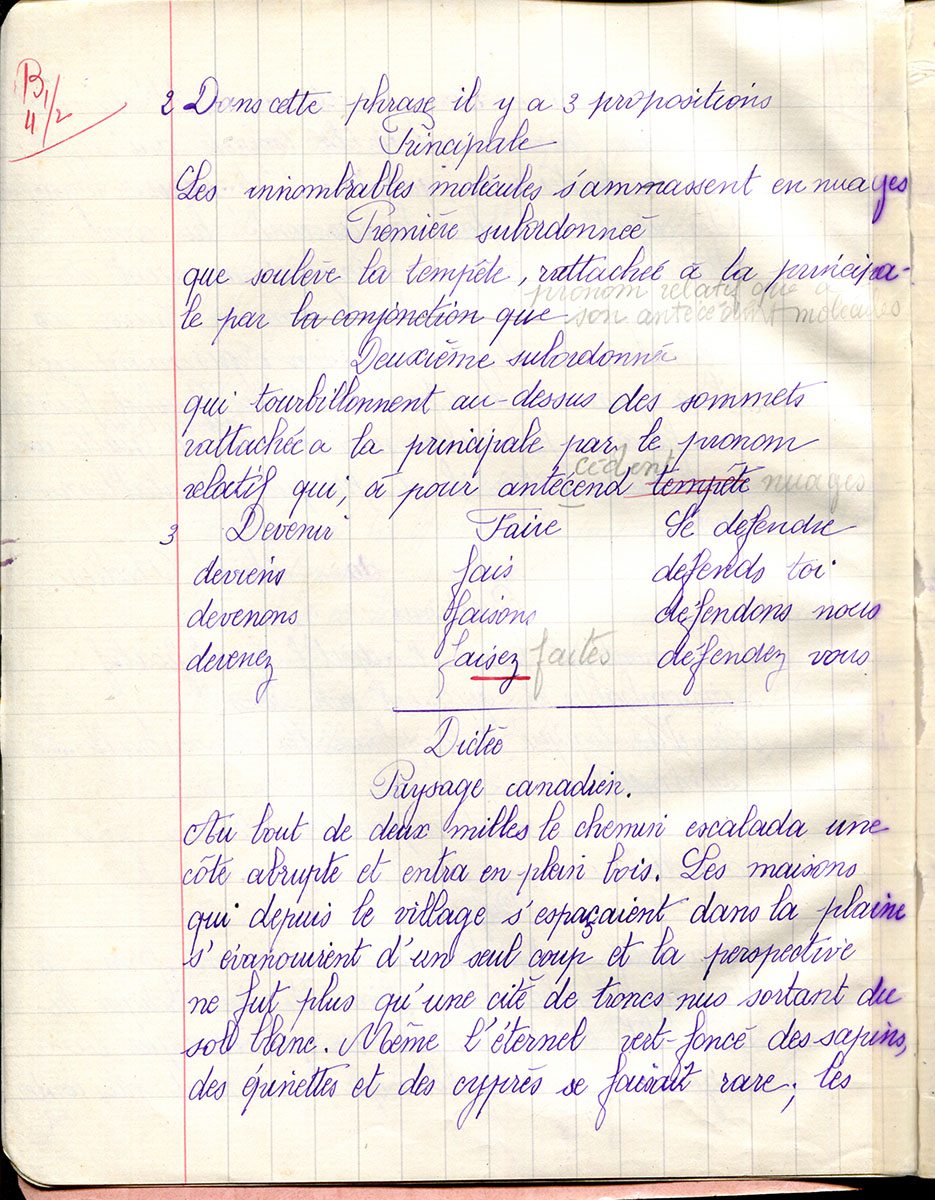 B 1/2
4
2 Dans cette phrase il y a 3 propositions
Principale
Les innombrables molécules s'ammassent en nuages
Première subordonnée
que soulève la tempête, rattachée à la principa-
pronom relatif que a
le par la conjonction que son antécédent molécules
Deuxième subordonnée
qui tourbillonnent au-dessus des sommets
rattachée a la principale par le pronom
cédent
relatif qui, à pour antécend tempête nuages
3 Devenir Faire Se defendre
deviens fais défends toi
devenons faisons défendons nous
devenez faisez faites défendez vous
Dictée
Paysage canadien.
Au bout de deux milles le chemin escalada une
côte abrupte et entra en plein bois. Les maisons
qui depuis le village s'espaçaient dans la plaine
s'évanouirent d'un seul coup et la perspective
ne fut plus qu'une cité de troncs nus sortant du
sol blanc. Même l'éternel vert-foncé des sapins,
des épinettes et des cyprès se faisait rare ; les